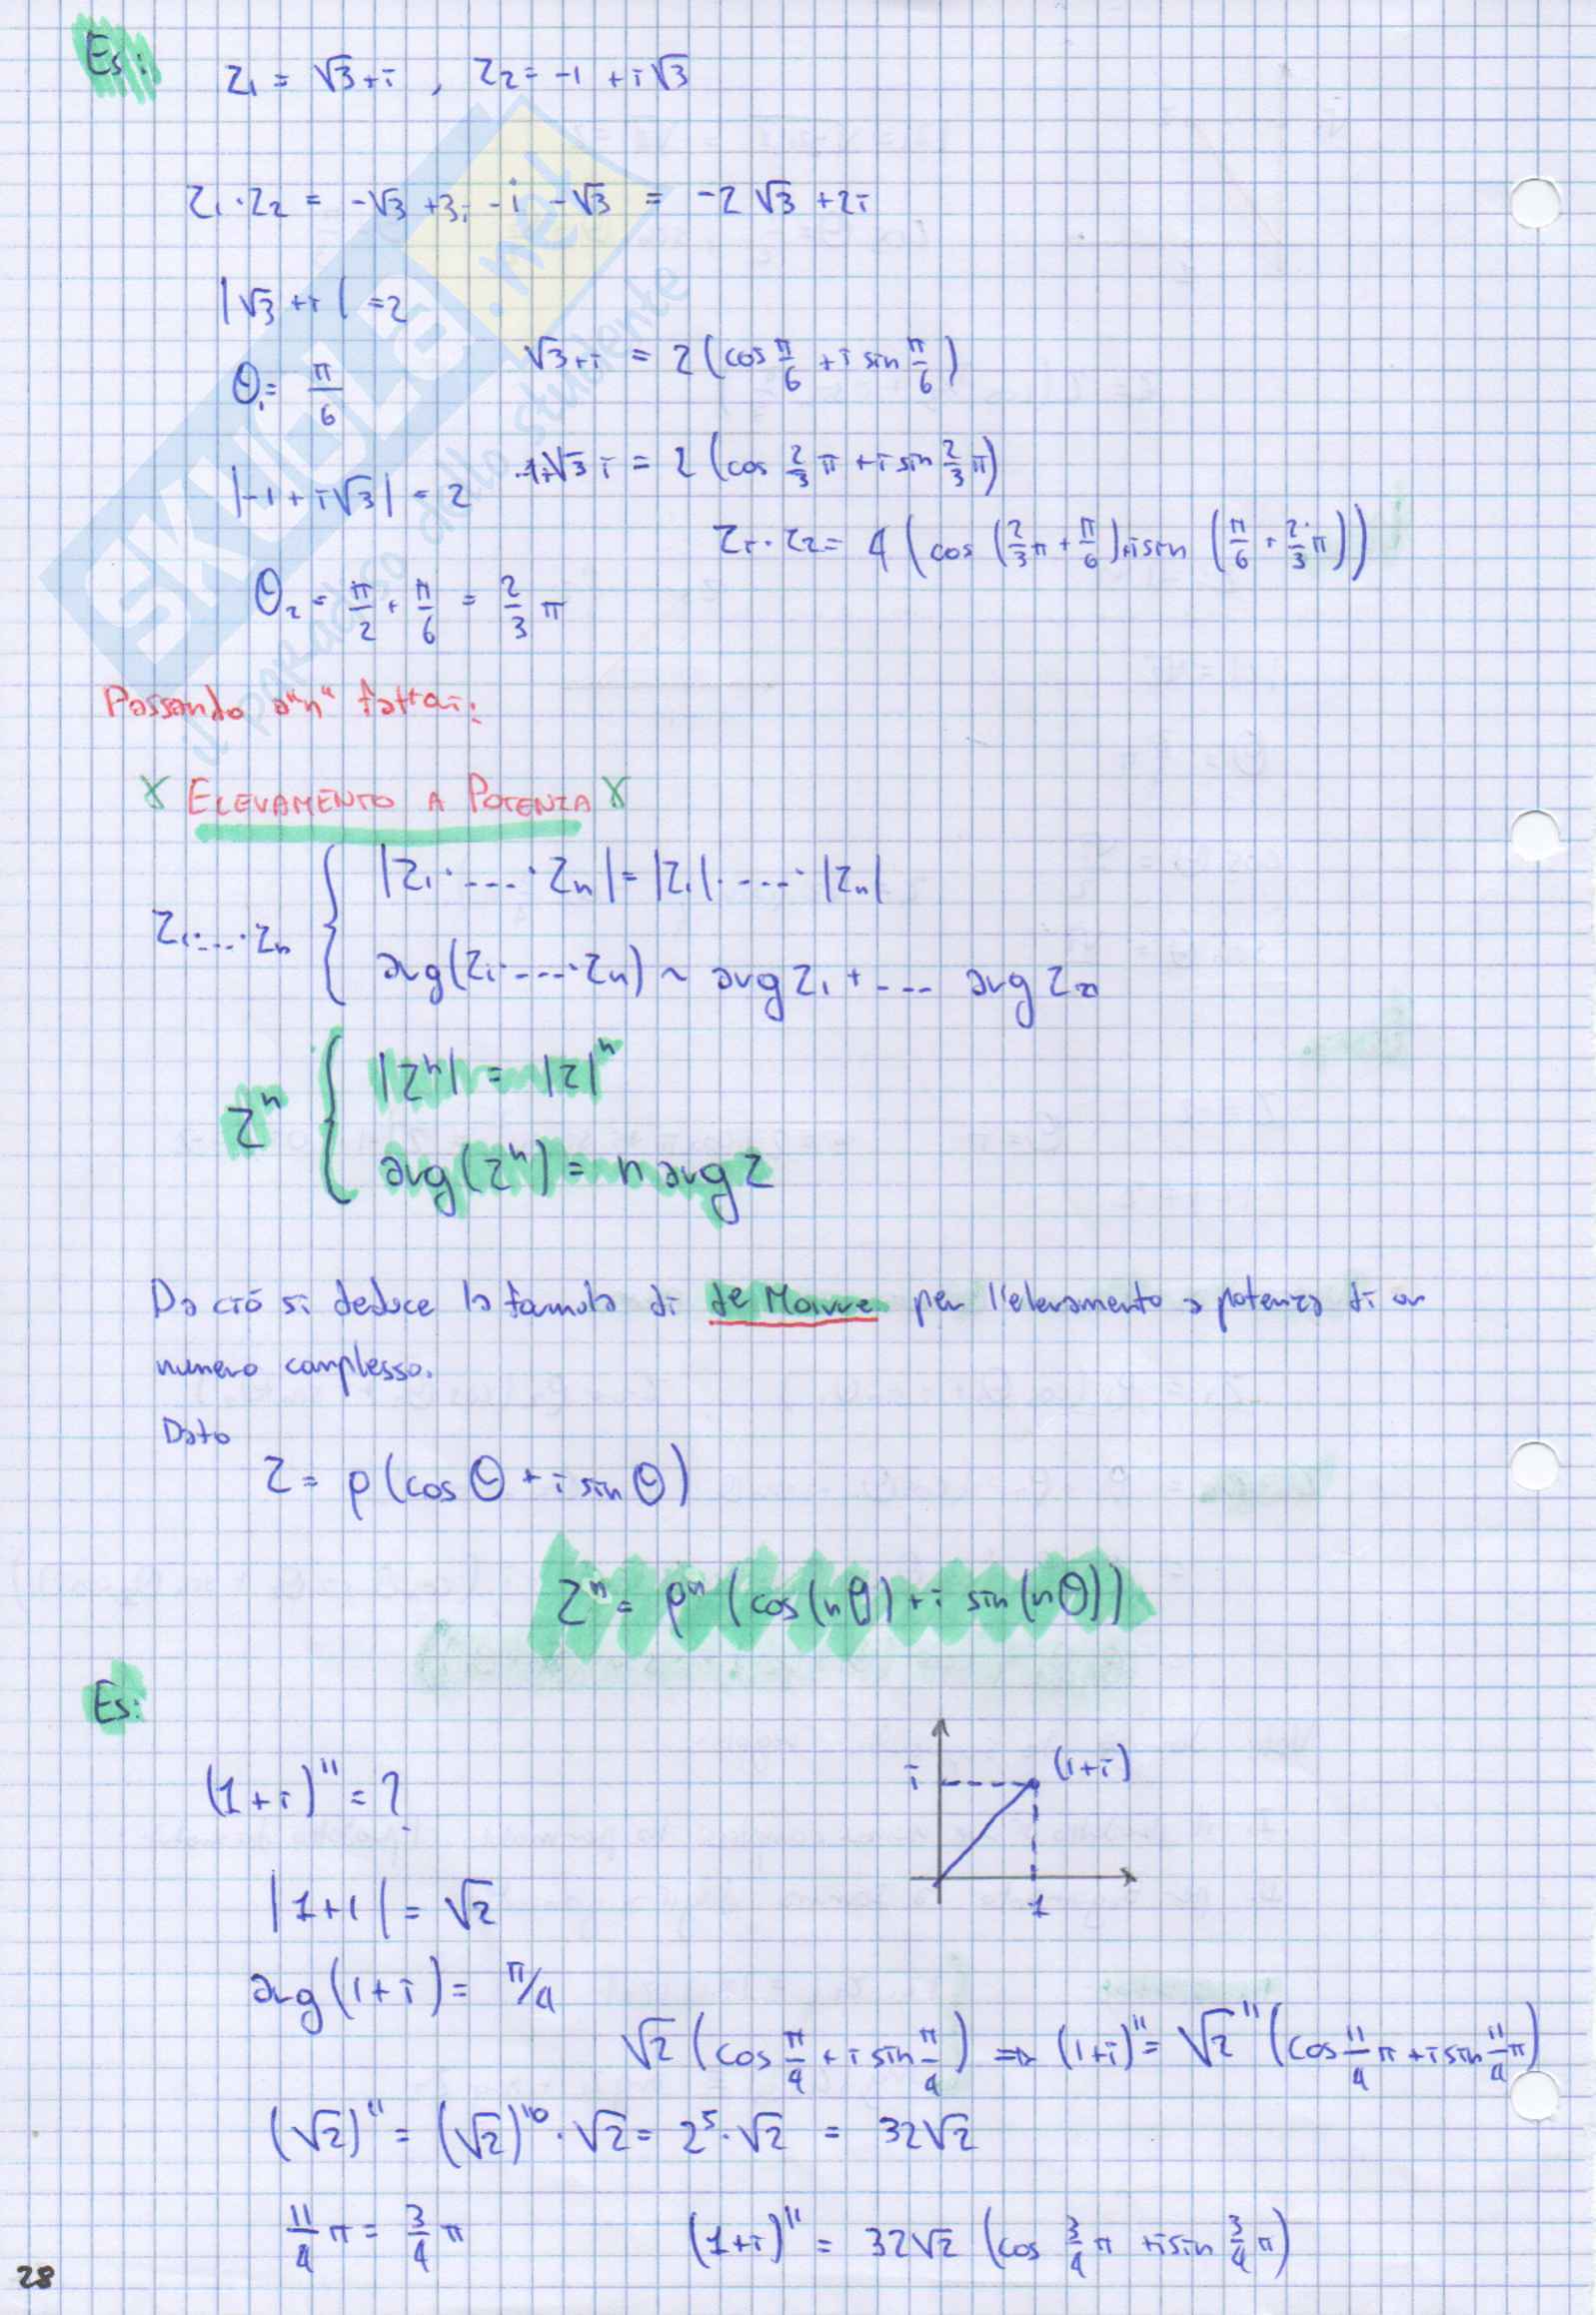 Es:
z₁ = √3+i , z₂ = -1 + i√3
z₁·z₂ = -√3 +3i -i -√3 = -2√3 +2i
|√3 +i| = 2
√3+i = 2(cos π/6 + i sin π/6)
θ₁ = π/6
-1+√3 i = 2 (cos 2/3 π + i sin 2/3 π)
|-1 + i√3| = 2
z₁·z₂ = 4 (cos (2/3 π + π/6) + i sin (π/6 + 2/3 π))
θ₂ = π/2 + π/6 = 2/3 π
SKUOLA.net
il paradiso dello studente
Passando a "n" fattori:
ELEVAMENTO A POTENZA
z₁·....·zₙ { |z₁·....·zₙ| = |z₁|·....·|zₙ|
arg(z₁·....·zₙ) ~ arg z₁ + ... arg zₙ
zⁿ { |zⁿ| = |z|ⁿ
arg(zⁿ) = n arg z
Da ció si deduce la formula di de Moivre per l'elevamento a potenza di un
numero complesso.
Dato
z = ρ(cos θ + i sin θ)
zⁿ = ρⁿ (cos(nθ) + i sin(nθ))
Es:
i (1+i)
(1+i)¹¹ = ?
1
|1+i| = √2
arg(1+i) = π/4
√2 (cos π/4 + i sin π/4) ⇒ (1+i)¹¹ = √2¹¹ (cos 11/4 π + i sin 11/4 π)
(√2)¹¹ = (√2)¹⁰·√2 = 2⁵·√2 = 32√2
11/4 π = 3/4 π
(1+i)¹¹ = 32√2 (cos 3/4 π + i sin 3/4 π)
28